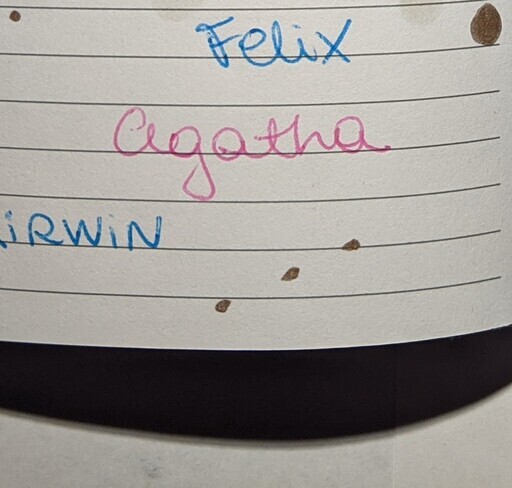 Felix
Agatha
iRWiN